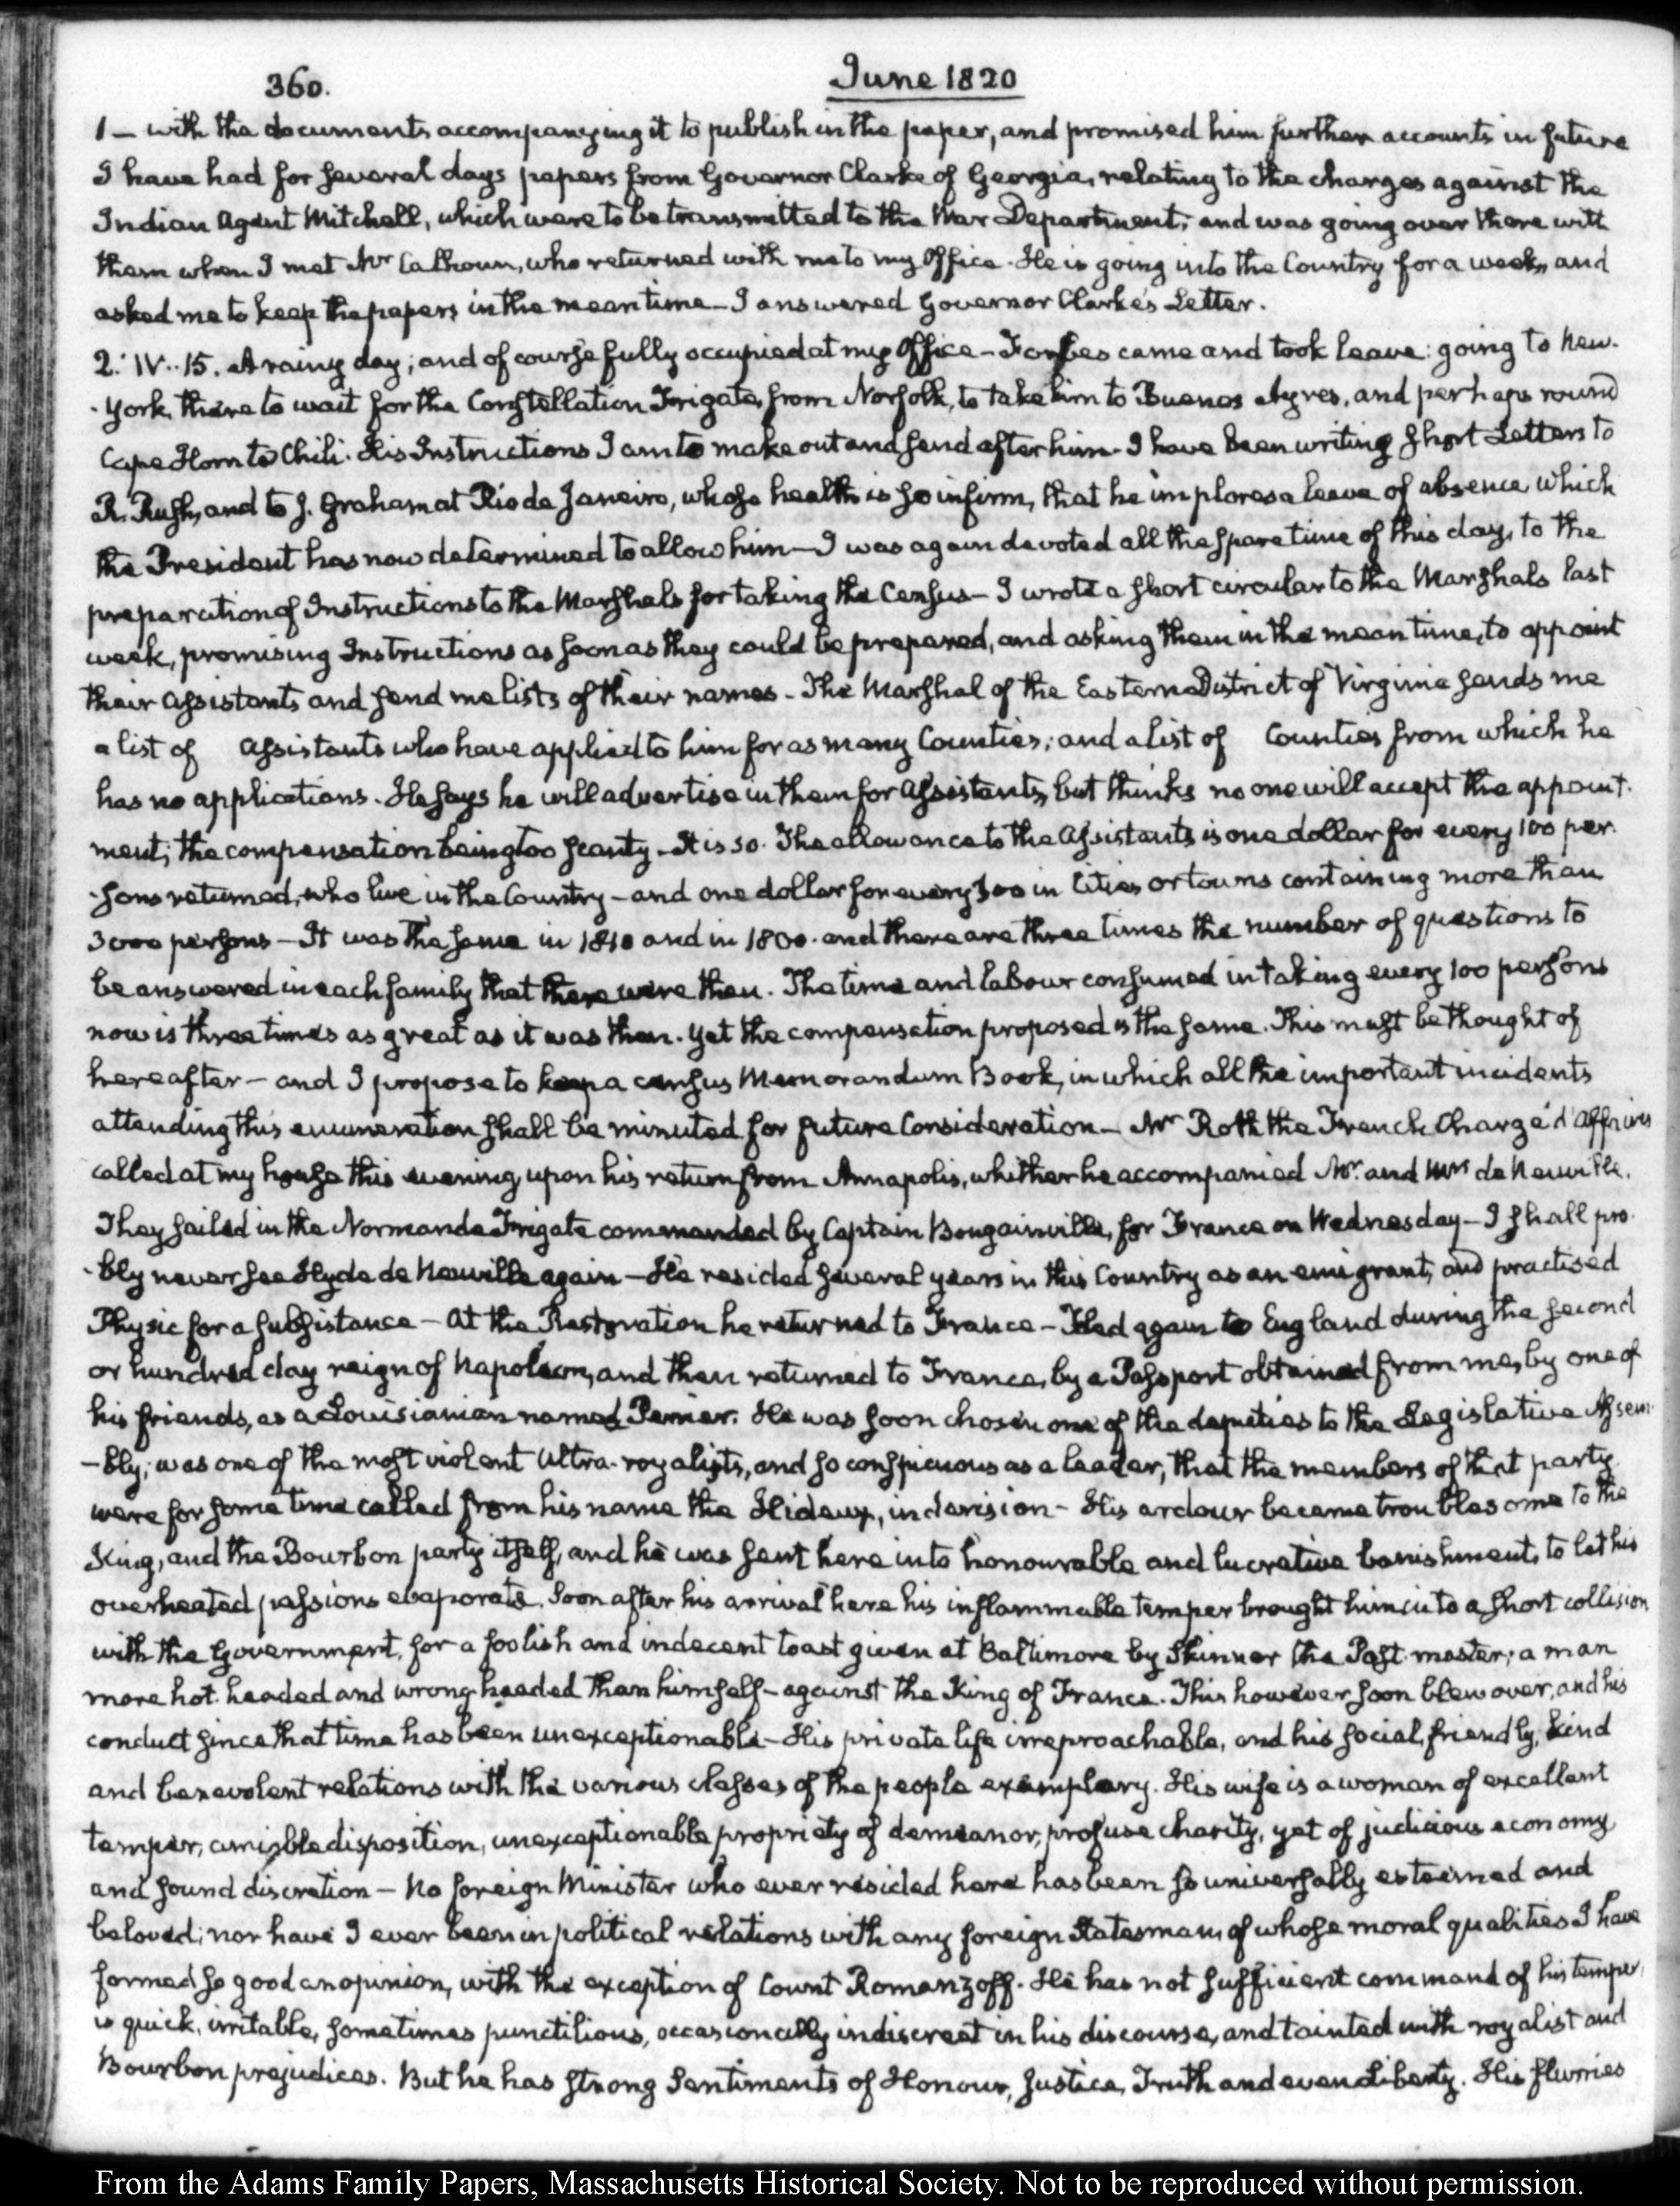 360.
June 1820
1 — with the documents accompanying it to publish in the paper, and promised him further accounts in future
I have had for several days papers from Governor Clarke of Georgia, relating to the charges against the
Indian Agent Mitchell, which were to be transmitted to the War Department, and was going over there with
them when I met Mr Calhoun, who returned with me to my Office. He is going into the Country for a week, and
asked me to keep the papers in the mean time — I answered Governor Clarke's Letter.
2. IV..15. A rainy day; and of course fully occupied at my Office — Forbes came and took leave: going to New-
-York, there to wait for the Constellation Frigate, from Norfolk, to take him to Buenos Ayres, and perhaps round
Cape Horn to Chili. His Instructions I am to make out and send after him — I have been writing short Letters to
R. Rush, and to J. Graham at Rio de Janeiro, whose health is so infirm, that he implores a leave of absence which
the President has now determined to allow him — I was again devoted all the spare time of this day, to the
preparation of Instructions to the Marshals for taking the Census — I wrote a short circular to the Marshals last
week, promising Instructions as soon as they could be prepared, and asking them in the mean time, to appoint
their assistants and send me lists of their names — The Marshal of the Eastern District of Virginia sends me
a list of assistants who have applied to him for as many Counties; and a list of Counties from which he
has no applications. He says he will advertise in them for assistants, but thinks no one will accept the appoint-
ment; the compensation being too scanty — It is so. The allowance to the assistants is one dollar for every 100 per-
-sons returned, who live in the Country — and one dollar for every 300 in Cities or towns containing more than
3000 persons — It was the same in 1810 and in 1800. and there are three times the number of questions to
be answered in each family that there were then. The time and labour consumed in taking every 100 persons
now is three times as great as it was then. Yet the compensation proposed is the same. This must be thought of
hereafter — and I propose to keep a census Memorandum Book, in which all the important incidents
attending this enumeration shall be minuted for future Consideration — Mr Roth the French Chargé d'Affaires
called at my house this evening, upon his return from Annapolis, whither he accompanied Mr. and Mrs de Neuville.
They sailed in the Normande Frigate commanded by Captain Bougainville, for France on Wednesday — I shall pro-
-bly never see Hyde de Neuville again — He resided several years in this Country as an emigrant, and practised
Physic for a subsistance — At the Restoration he returned to France — Fled again to England during the second
or hundred day reign of Napoleon, and then returned to France, by a Passport obtained from me, by one of
his friends, as a Louisianian named Perrier. He was soon chosen one of the deputies to the Legislative Assem-
-bly; was one of the most violent Ultra-royalists, and so conspicuous as a leader, that the members of that party
were for some time called from his name the Hideux, in derision — His ardour became troublesome to the
King, and the Bourbon party itself, and he was sent here into honourable and lucrative banishment, to let his
overheated passions evaporate. Soon after his arrival here his inflammable temper brought him into a short collision
with the Government, for a foolish and indecent toast given at Baltimore by Skinner the Post-master; a man
more hot-headed and wrong-headed than himself — against the King of France. This however soon blew over, and his
conduct since that time has been unexceptionable — His private life irreproachable, and his social, friendly, kind
and benevolent relations with the various classes of the people exemplary. His wife is a woman of excellent
temper, amiable disposition, unexceptionable propriety of demeanor, profuse charity, yet of judicious economy
and sound discretion — No foreign Minister who ever resided here has been so universally esteemed and
beloved; nor have I ever been in political relations with any foreign Statesman, of whose moral qualities I have
formed so good an opinion, with the exception of Count Romanzoff. He has not sufficient command of his temper,
is quick, irritable, sometimes punctilious, occasionally indiscreet in his discourse, and tainted with royalist and
Bourbon prejudices. But he has strong Sentiments of Honour, Justice, Truth and even Liberty. His flurries
From the Adams Family Papers, Massachusetts Historical Society. Not to be reproduced without permission.